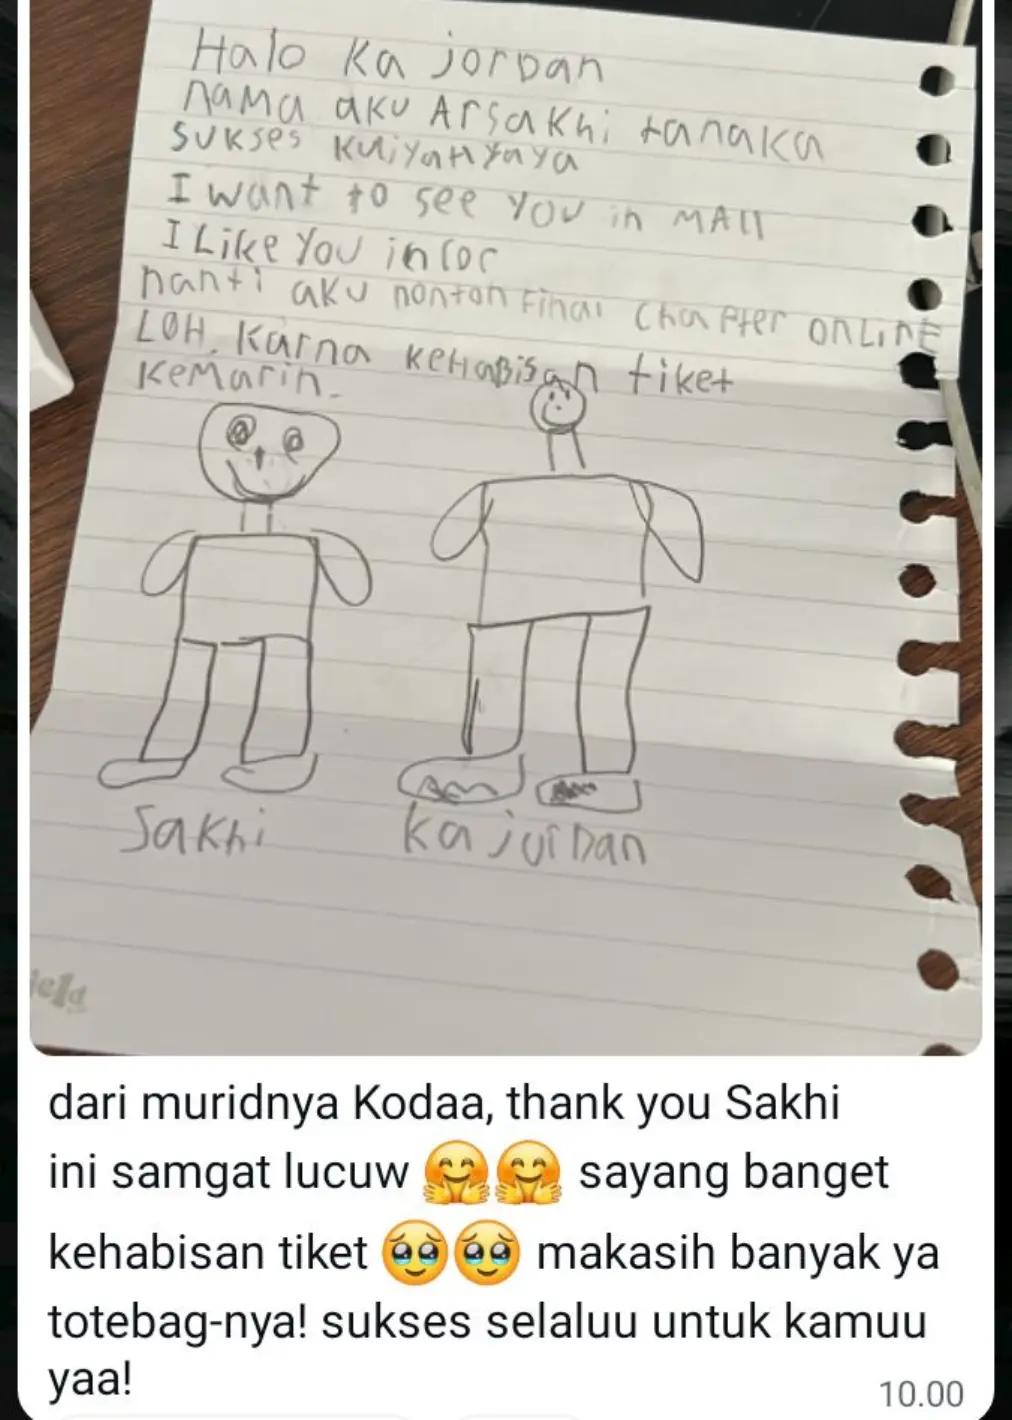 Halo Ka jorDan
nama aku Arsakhi tanaka
sukses kuiyahyaya
I want to see you in MAll
I Like You in Coc
nanti aku nonton Final Chapter ONLINE
LOH. Karna KeHaBisan tiket
KeMarin.
Sakhi
ka jorDan
dari muridnya Kodaa, thank you Sakhi
ini samgat lucuw 🤗🤗 sayang banget
kehabisan tiket 🥹🥹 makasih banyak ya
totebag-nya! sukses selaluu untuk kamuu
yaa!
10.00